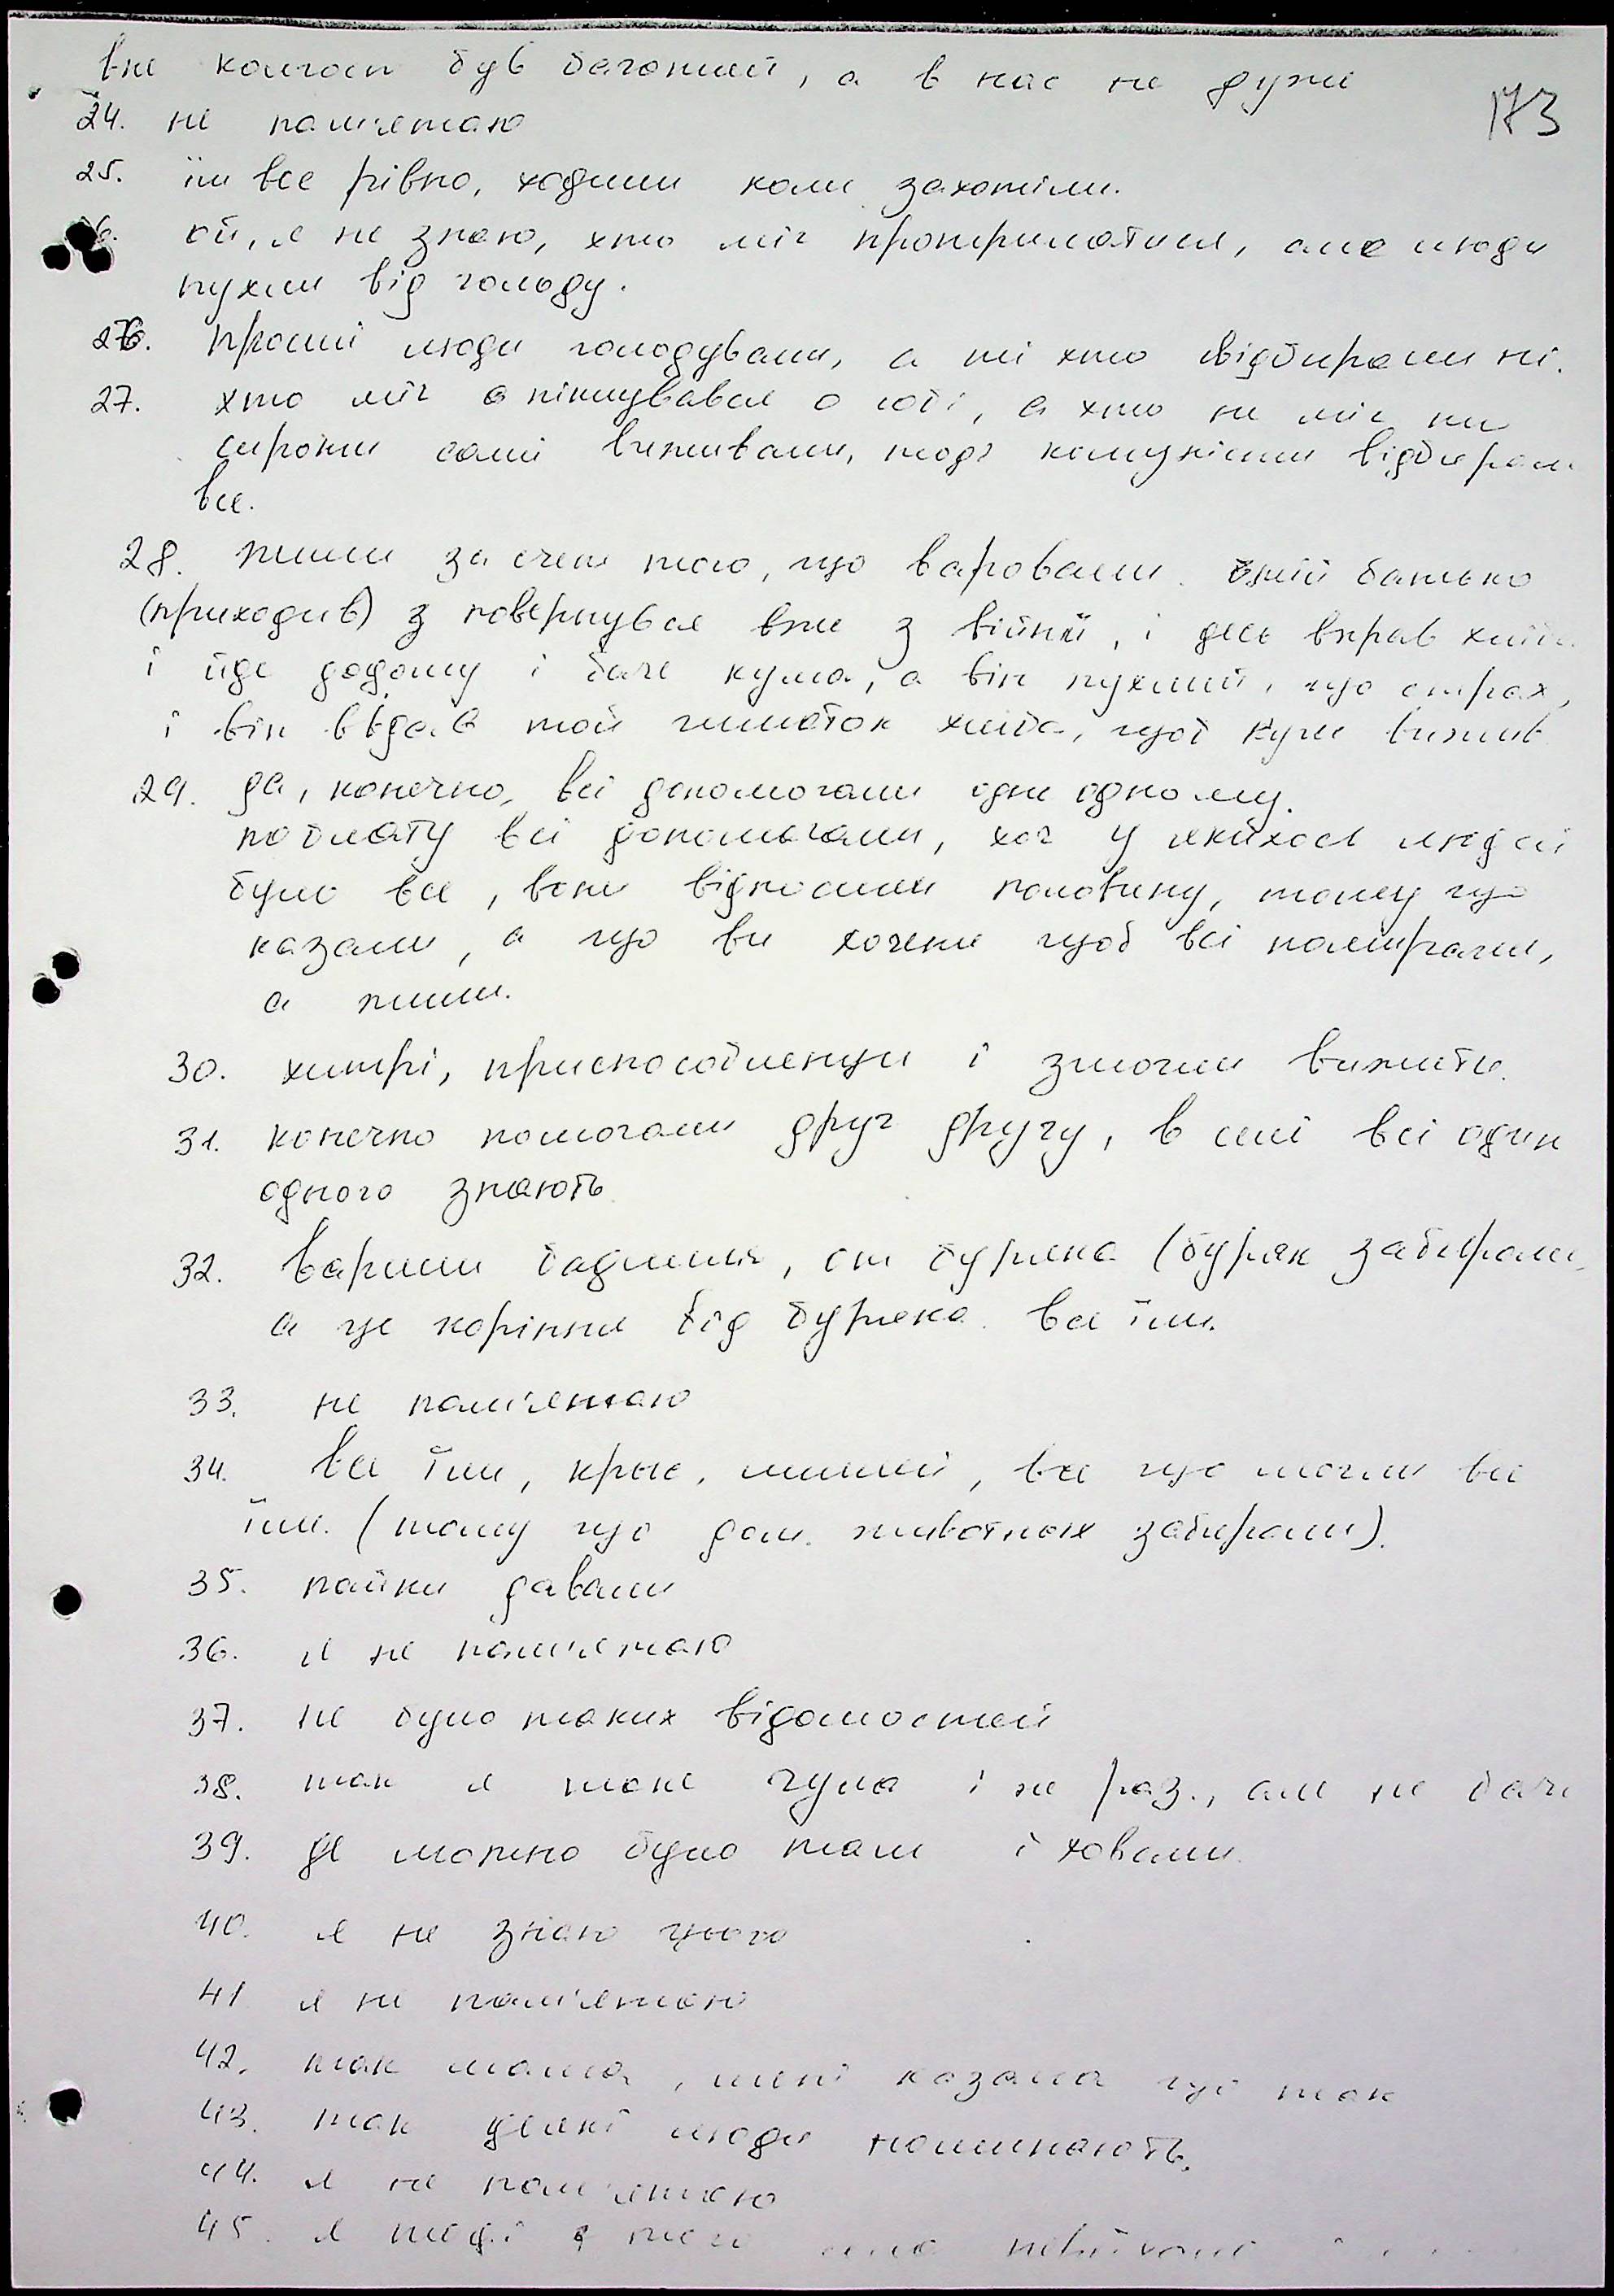 вже колгосп був багатший, а в нас не дуже
173
24. не памʼятаю
25. їм все рівно, ходили коли захотіли.
26. ой, я не знаю, хто міг протриматися, але люди
пухли від голоду.
26. прості люди голодували, а ті хто відбирали ні.
27. хто міг опікувався о собі, а хто не міг
сироти самі виживали, тоді комуністи відбирали
все.
28. жили за счет того, що варовали. батько
(приходив) з повернувся вже з війни, і десь вкрав хліба
і йде додому і баче кума, а він пухлий, що страх,
і він віддав той шматок хліба, щоб кум вижив
29. да, конечно, всі допомогали одне одному.
по блату всі допомагали, хоч у якихось людей
було все, вони відносили половину, тому що
казали, а що ви хочете щоб всі помирали,
а жили.
30. хитрі, приспособленци і змогли вижити.
31. конечно помогали друг другу, в селі всі один
одного знають
32. варили бадилля, от буряка (буряк забирали,
а це коріння від буряка. все їли.
33. не памʼятаю
34. все їли, крыс, мишей, все що могли все
їли. (тому що дом. животных забирали).
35. пайки давали
36. я не памʼятаю
37. не було таких відомостей
38. так я таке чула і не раз., але не бачи
39. де можно було там і ховали.
40. я не знаю цього
41 я не памʼятаю
42. так мама, мені казала що так
43. так деякі люди поминають.
44. я не памʼятаю
45. я тоді